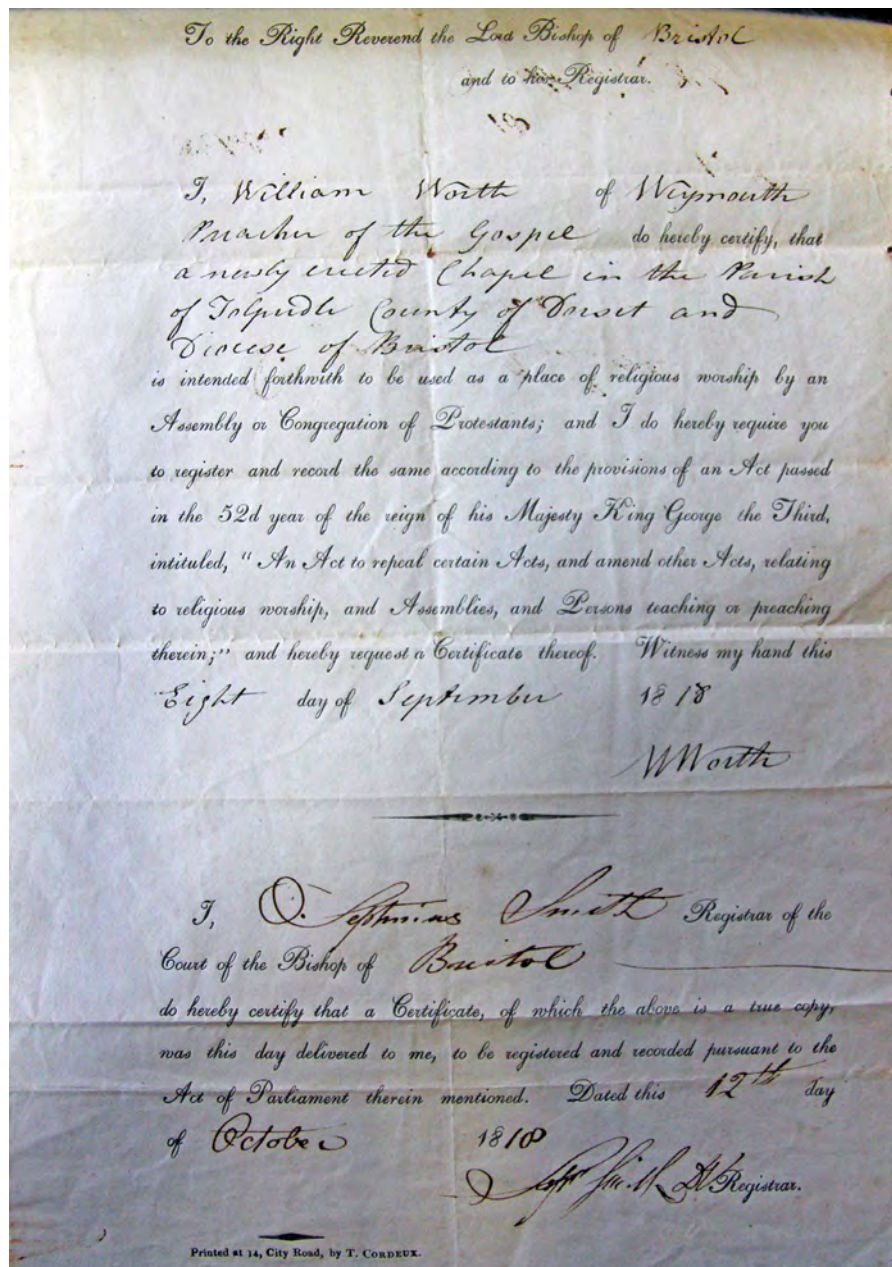 To the Right Reverend the Lord Bishop of Bristol
and to his Registrar.
I, William Worth of Weymouth
Preacher of the Gospel do hereby certify, that
a newly erected Chapel in the Parish
of Tolpudle County of Dorset and
Diocese of Bristol
is intended forthwith to be used as a place of religious worship by an
Assembly or Congregation of Protestants; and I do hereby require you
to register and record the same according to the provisions of an Act passed
in the 52d year of the reign of his Majesty King George the Third,
intituled, "An Act to repeal certain Acts, and amend other Acts, relating
to religious worship, and Assemblies, and Persons teaching or preaching
therein;" and hereby request a Certificate thereof. Witness my hand this
Eight day of September 1818
WWorth
I, Septimus Smith Registrar of the
Court of the Bishop of Bristol
do hereby certify that a Certificate, of which the above is a true copy,
was this day delivered to me, to be registered and recorded pursuant to the
Act of Parliament therein mentioned. Dated this 12th day
of October 1818
Registrar.
Printed at 14, City Road, by T. CORDEUX.